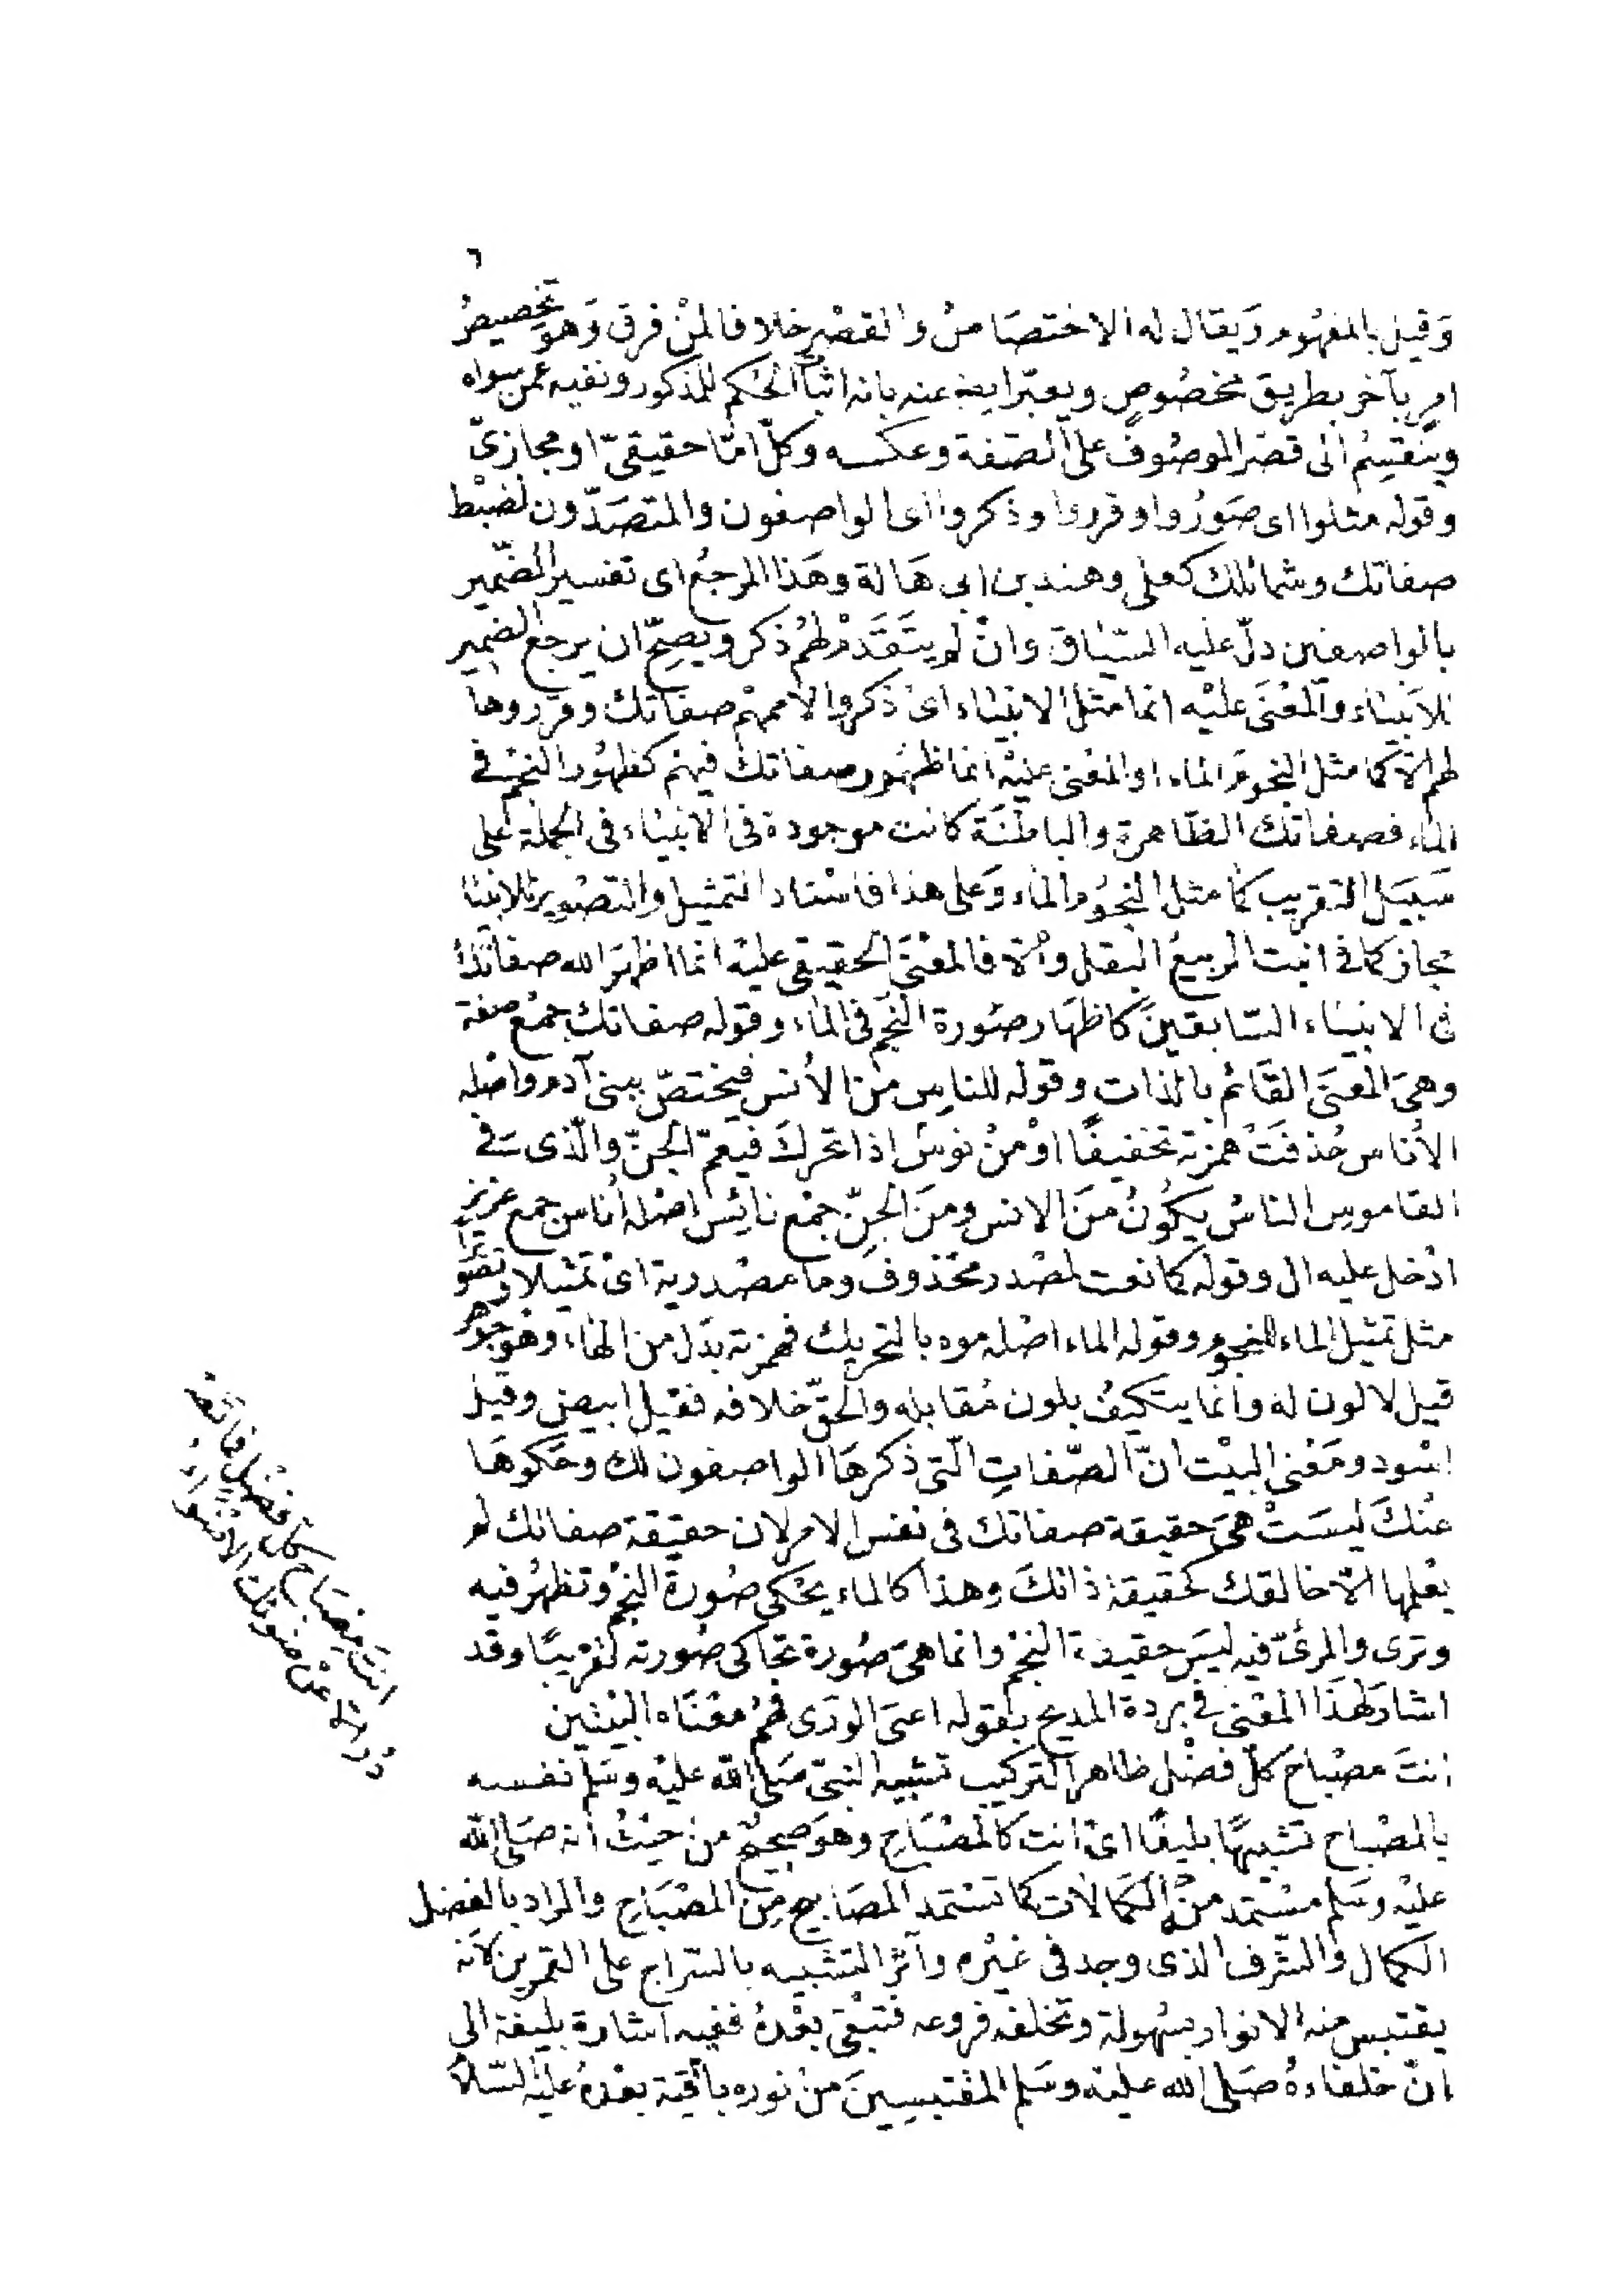 ٦
وَقيل بالمفهُوم وَيقال له الاختصَاصُ والقصْر خلافا لمنْ فرق وَهوَ تخصيصُ
امر بآخر بطريق مخصُوصٍ ويعبّر ايضا عنه بانه اثبات الحكم للمذكور ونفيه عمن سواه
وينقسِمُ الى قصر الموصُوف على الصّفة وعكسه وكلّ امّا حقيقىّ او مجازىّ
وقوله مثلوا اى صَورُوا وقرروا وذكروا اى الواصفون والمتصَدّون لضبْط
صفاتك وشمائلك كعلى وهند بن ابى هَالة وهَذا المرجعُ اى تفسير الضّمير
بالواصفين دلّ عليه السّيَاق وانْ لم يتَقَدمْ لهُم ذكر ويصحّ ان يرجع الضمير
للاَنبيَاء والمعْنَى عليْه انما مثل الانبيَاء اىْ ذكروا لاممهمْ صفاتك وقرروها
لهم الاّ كما مثل النجومَ الماء او المعْنى عليْه انما ظهُور صفاتكَ فيهم كظهُور النجْم فى
الماء فصفاتك الظّاهرة والباطنَة كانت موجودة فى الانبيَاء فى الجملة على
سَبيَل التقريب كما مثل النجُوم الماء وَعلى هذا فاسْناد التمثيل والتصْوير للانبيَا
مجاز كما فى انبت الربيعُ البقل وإلاّ فالمعْنَى الحقيقى عليْه انما اظهَر الله صفاتكَ
فى الانبيَاء السّابقينَ كاظهَار صُورة النجْم فى الماء وقوله صفاتك جمْع صفة
وهىَ المعنَى القَائم بالذاتِ وقوله للناسِ منَ الاُنس فيختصّ ببنى آدم واصْله
الاُناس حُذفَتْ همزته تخفيفًا اوْ منْ نوسٍ اذا تحركَ فيعمّ الجنّ والّذى فى
القاموس الناسُ يكُونُ منَ الانس ومنَ الجنّ جمْع نائِس اصْله اُناس جمع عزيز
ادْخل عليه ال وقوله كما نعت لمصْدر محْذوف وما مصْدرية اىْ تمْثيلا وتصويرا
مثل تمثيل الماء للنجوم وقوله الماء اصْله موه بالتحريك فهمزته بدَل من الهَاء وهوَ جوهر
قيل لا لون له وانما يتكيفُ بلون مُقابله والحقّ خلافه فقيل ابيض وقيل
اسْود ومَعْنى البيْت انّ الصّفاتِ الّتى ذكرهَا الواصفون لك وحَكوهَا
عنْكَ ليسَتْ هىَ حقيقة صفاتك فى نفس الامر لان حقيقة صفاتك لم
يعْلمها الاّ خالقك كحقيقة ذاتكَ وهذا كالماء يحْكى صُورة النجْم وتظهرُ فيه
وترى والمرئىّ فيه ليسَ حقيقة النجْم وانما هىَ صُورة تحاكى صُورته تقريبًا وقد
اشارَ لهَذا المعْنى فى بردة المديح بقوله اعىَ الورَى فهْمُ معْنَاه البيْتين
انتَ مصْبَاح كلّ فضْل ظاهر التركيب تشبيه النبىّ صَلى اللّه عليْه وسَلم نفسه
بالمصْباح تشبيهًا بليغًا اىْ انت كالمصْبَاحِ وهوَ صحيحٌ منْ حيْثُ انه صَلى اللّه
عليْه وسَلم مسْتمد منْه الكمَالات كما تسْتمد المصَابيح مِنَ المصْبَاحِ والمراد بالفضل
الكمال والشّرف الذى وجد فى غيْره وآثرَ التشبيه بالسّراج على القمرين لاَنه
يقتبس منه الانوار بسُهولة وتخلفه فروعه فتبْقى بعْدهُ ففيه اشارة بليغة الى
انّ خلفاءهُ صَلى الله عليْه وسَلم المقتبسِينَ منْ نوره باقية بعْدهُ عليْه السّلامُ
انتَ مِصْبَاح كلّ فضْل فما تصْـ
ـدُر الاّ عنْ ضوئك الاضواءُ